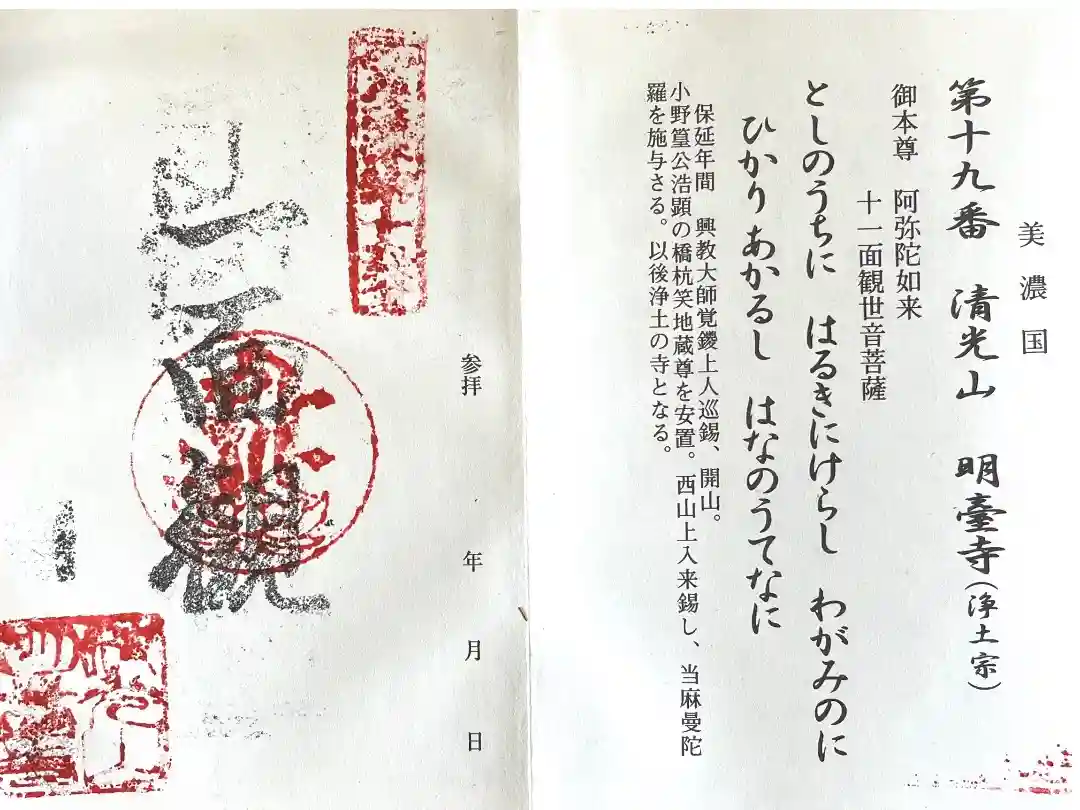 美濃国
第十九番 清光山 明臺寺（浄土宗）
御本尊 阿弥陀如来
十一面観世音菩薩
としのうちに はるきにけらし わがみのに
ひかりあかるし はなのうてなに
保延年間 興教大師覚鑁上人巡錫、開山。
小野篁公浩顕の橋杭笑地蔵尊を安置。西山上入来錫し、当麻曼陀
羅を施与さる。以後浄土の寺となる。
参拝 年 月 日
十
面観